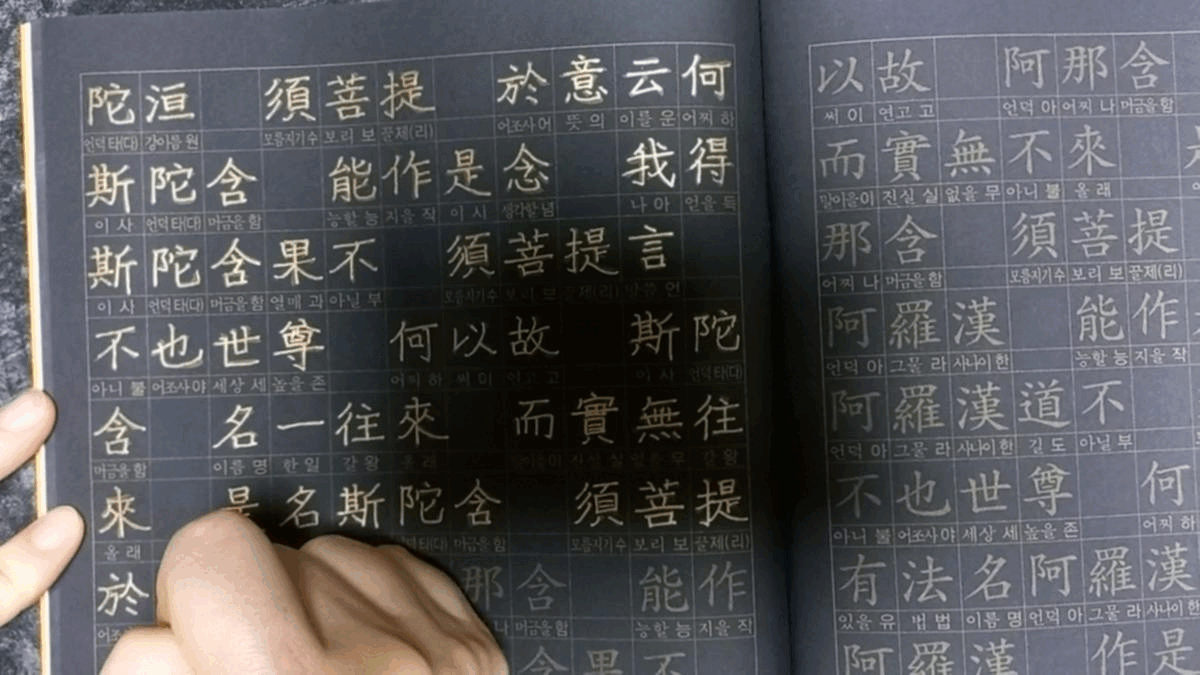 陀洹 須菩提 於意云何
언덕 타(다) 강이름 원 모름지기 수 보리 보 끌 제(리) 어조사 어 뜻 의 이를 운 어찌 하
斯陀含 能作是念 我得
이 사 언덕 타(다) 머금을 함 능할 능 지을 작 이 시 생각할 념 나 아 얻을 득
斯陀含果不 須菩提言
이 사 언덕 타(다) 머금을 함 열매 과 아닐 부 모름지기 수 보리 보 끌 제(리) 말씀 언
不也世尊 何以故 斯陀
아니 불 어조사 야 세상 세 높을 존 어찌 하 써 이 연고 고 이 사 언덕 타(다)
含 名一往來 而實無往
머금을 함 이름 명 한 일 갈 왕 올 래 말이을 이 진실 실 없을 무 갈 왕
來 是名斯陀含 須菩提
올 래 타(다) 머금을 함 모름지기 수 보리 보 끌 제(리)
於 那含 能作
어조사 머금을 함 능할 능 지을 작
含果不
以故 阿那含
써 이 연고 고 언덕 아 어찌 나 머금을 함
而實無不來
말이을 이 진실 실 없을 무 아니 불 올 래
那含 須菩提
어찌 나 머금을 함 모름지기 수 보리 보 끌 제(리)
阿羅漢 能作
언덕 아 그물 라 사나이 한 능할 능 지을 작
阿羅漢道不
언덕 아 그물 라 사나이 한 길 도 아닐 부
不也世尊 何
아니 불 어조사 야 세상 세 높을 존 어찌 하
有法名阿羅漢
있을 유 법 법 이름 명 언덕 아 그물 라 사나이 한
阿羅漢 作是